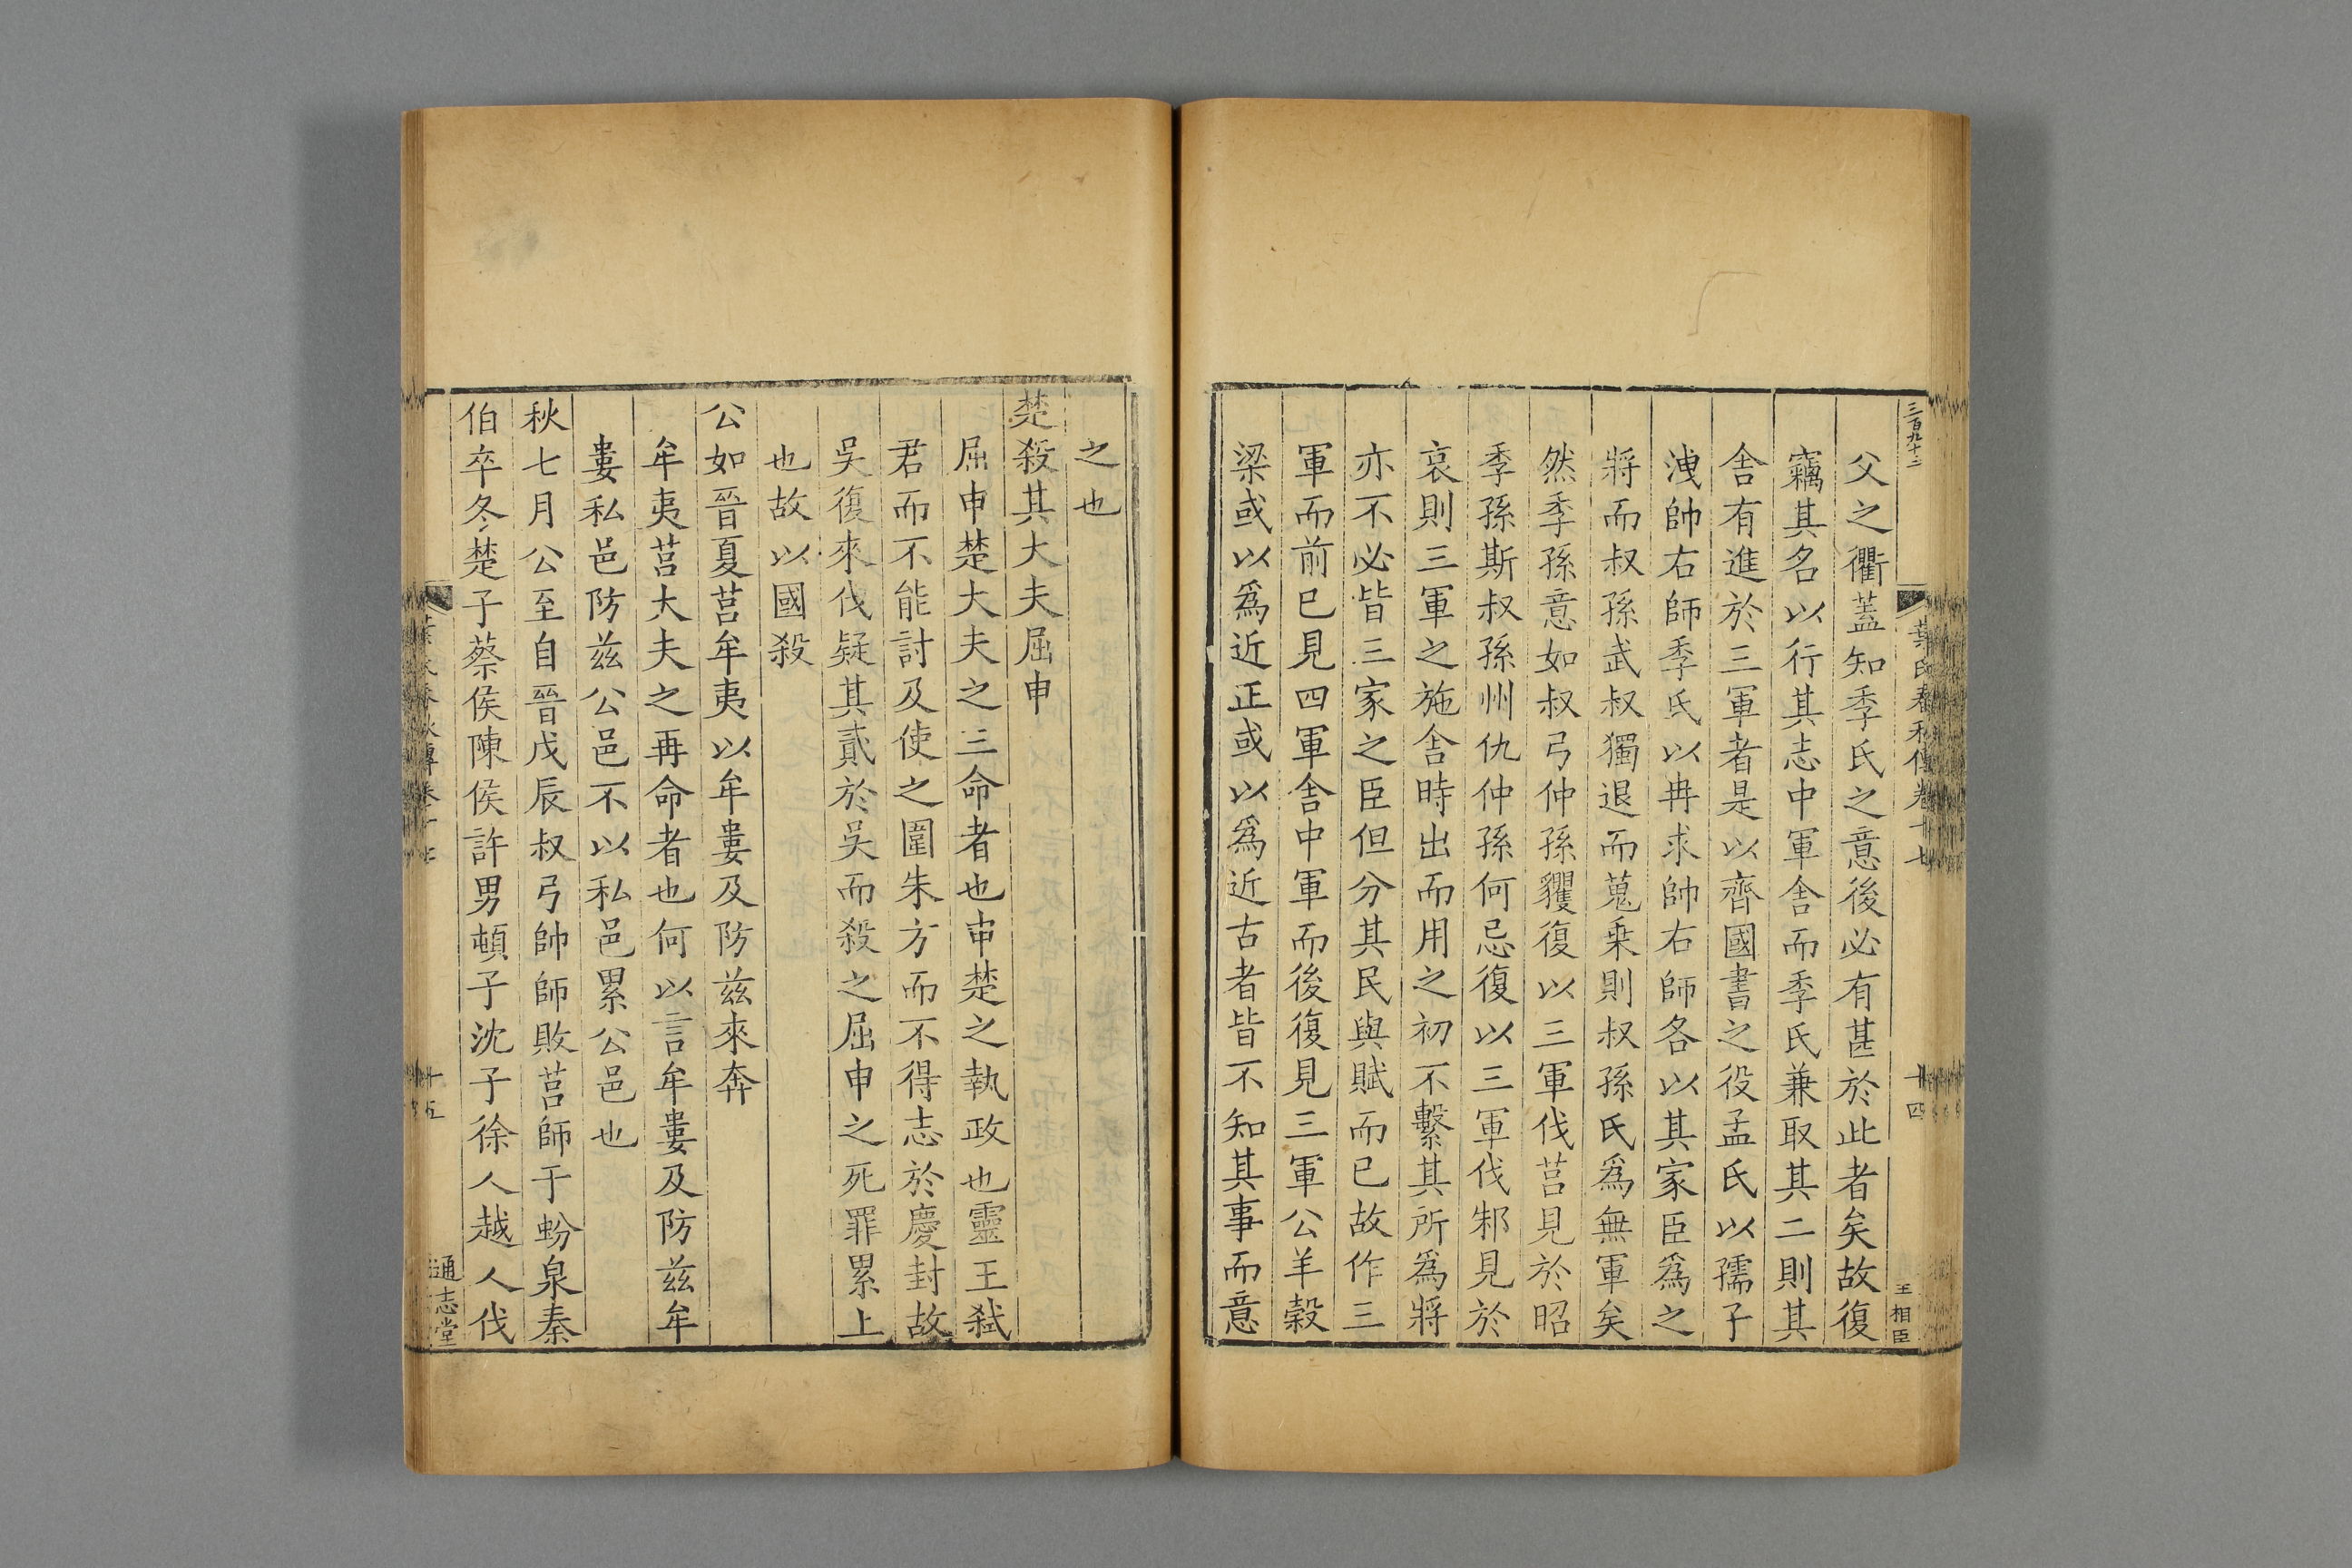 三百九十二
葉氏春秋傳卷十七
十四
王相臣
父之衢蓋知季氏之意後必有甚於此者矣故復
竊其名以行其志中軍舍而季氏兼取其二則其
舍有進於三軍者是以齊國書之役孟氏以孺子
洩帥右師季氏以冉求帥右師各以其家臣爲之
將而叔孫武叔獨退而蒐乗則叔孫氏爲無軍矣
然季孫意如叔弓仲孫貜復以三軍伐莒見於昭
季孫斯叔孫州仇仲孫何忌復以三軍伐邾見於
哀則三軍之施舍時出而用之初不繫其所爲將
亦不必皆三家之臣但分其民與賦而已故作三
軍而前已見四軍舍中軍而後復見三軍公羊穀
梁或以爲近正或以爲近古者皆不知其事而意
之也
楚殺其大夫屈申
屈申楚大夫之三命者也申楚之執政也靈王弑
君而不能討及使之圍朱方而不得志於慶封故
吳復來伐疑其貳於吳而殺之屈申之死罪累上
也故以國殺
公如晉夏莒牟夷以牟婁及防兹來奔
牟夷莒大夫之再命者也何以言牟婁及防兹牟
婁私邑防兹公邑不以私邑累公邑也
秋七月公至自晉戊辰叔弓帥師敗莒師于蚡泉秦
伯卒冬楚子蔡侯陳侯許男頓子沈子徐人越人伐
葉氏春秋傳卷十七
十五
通志堂